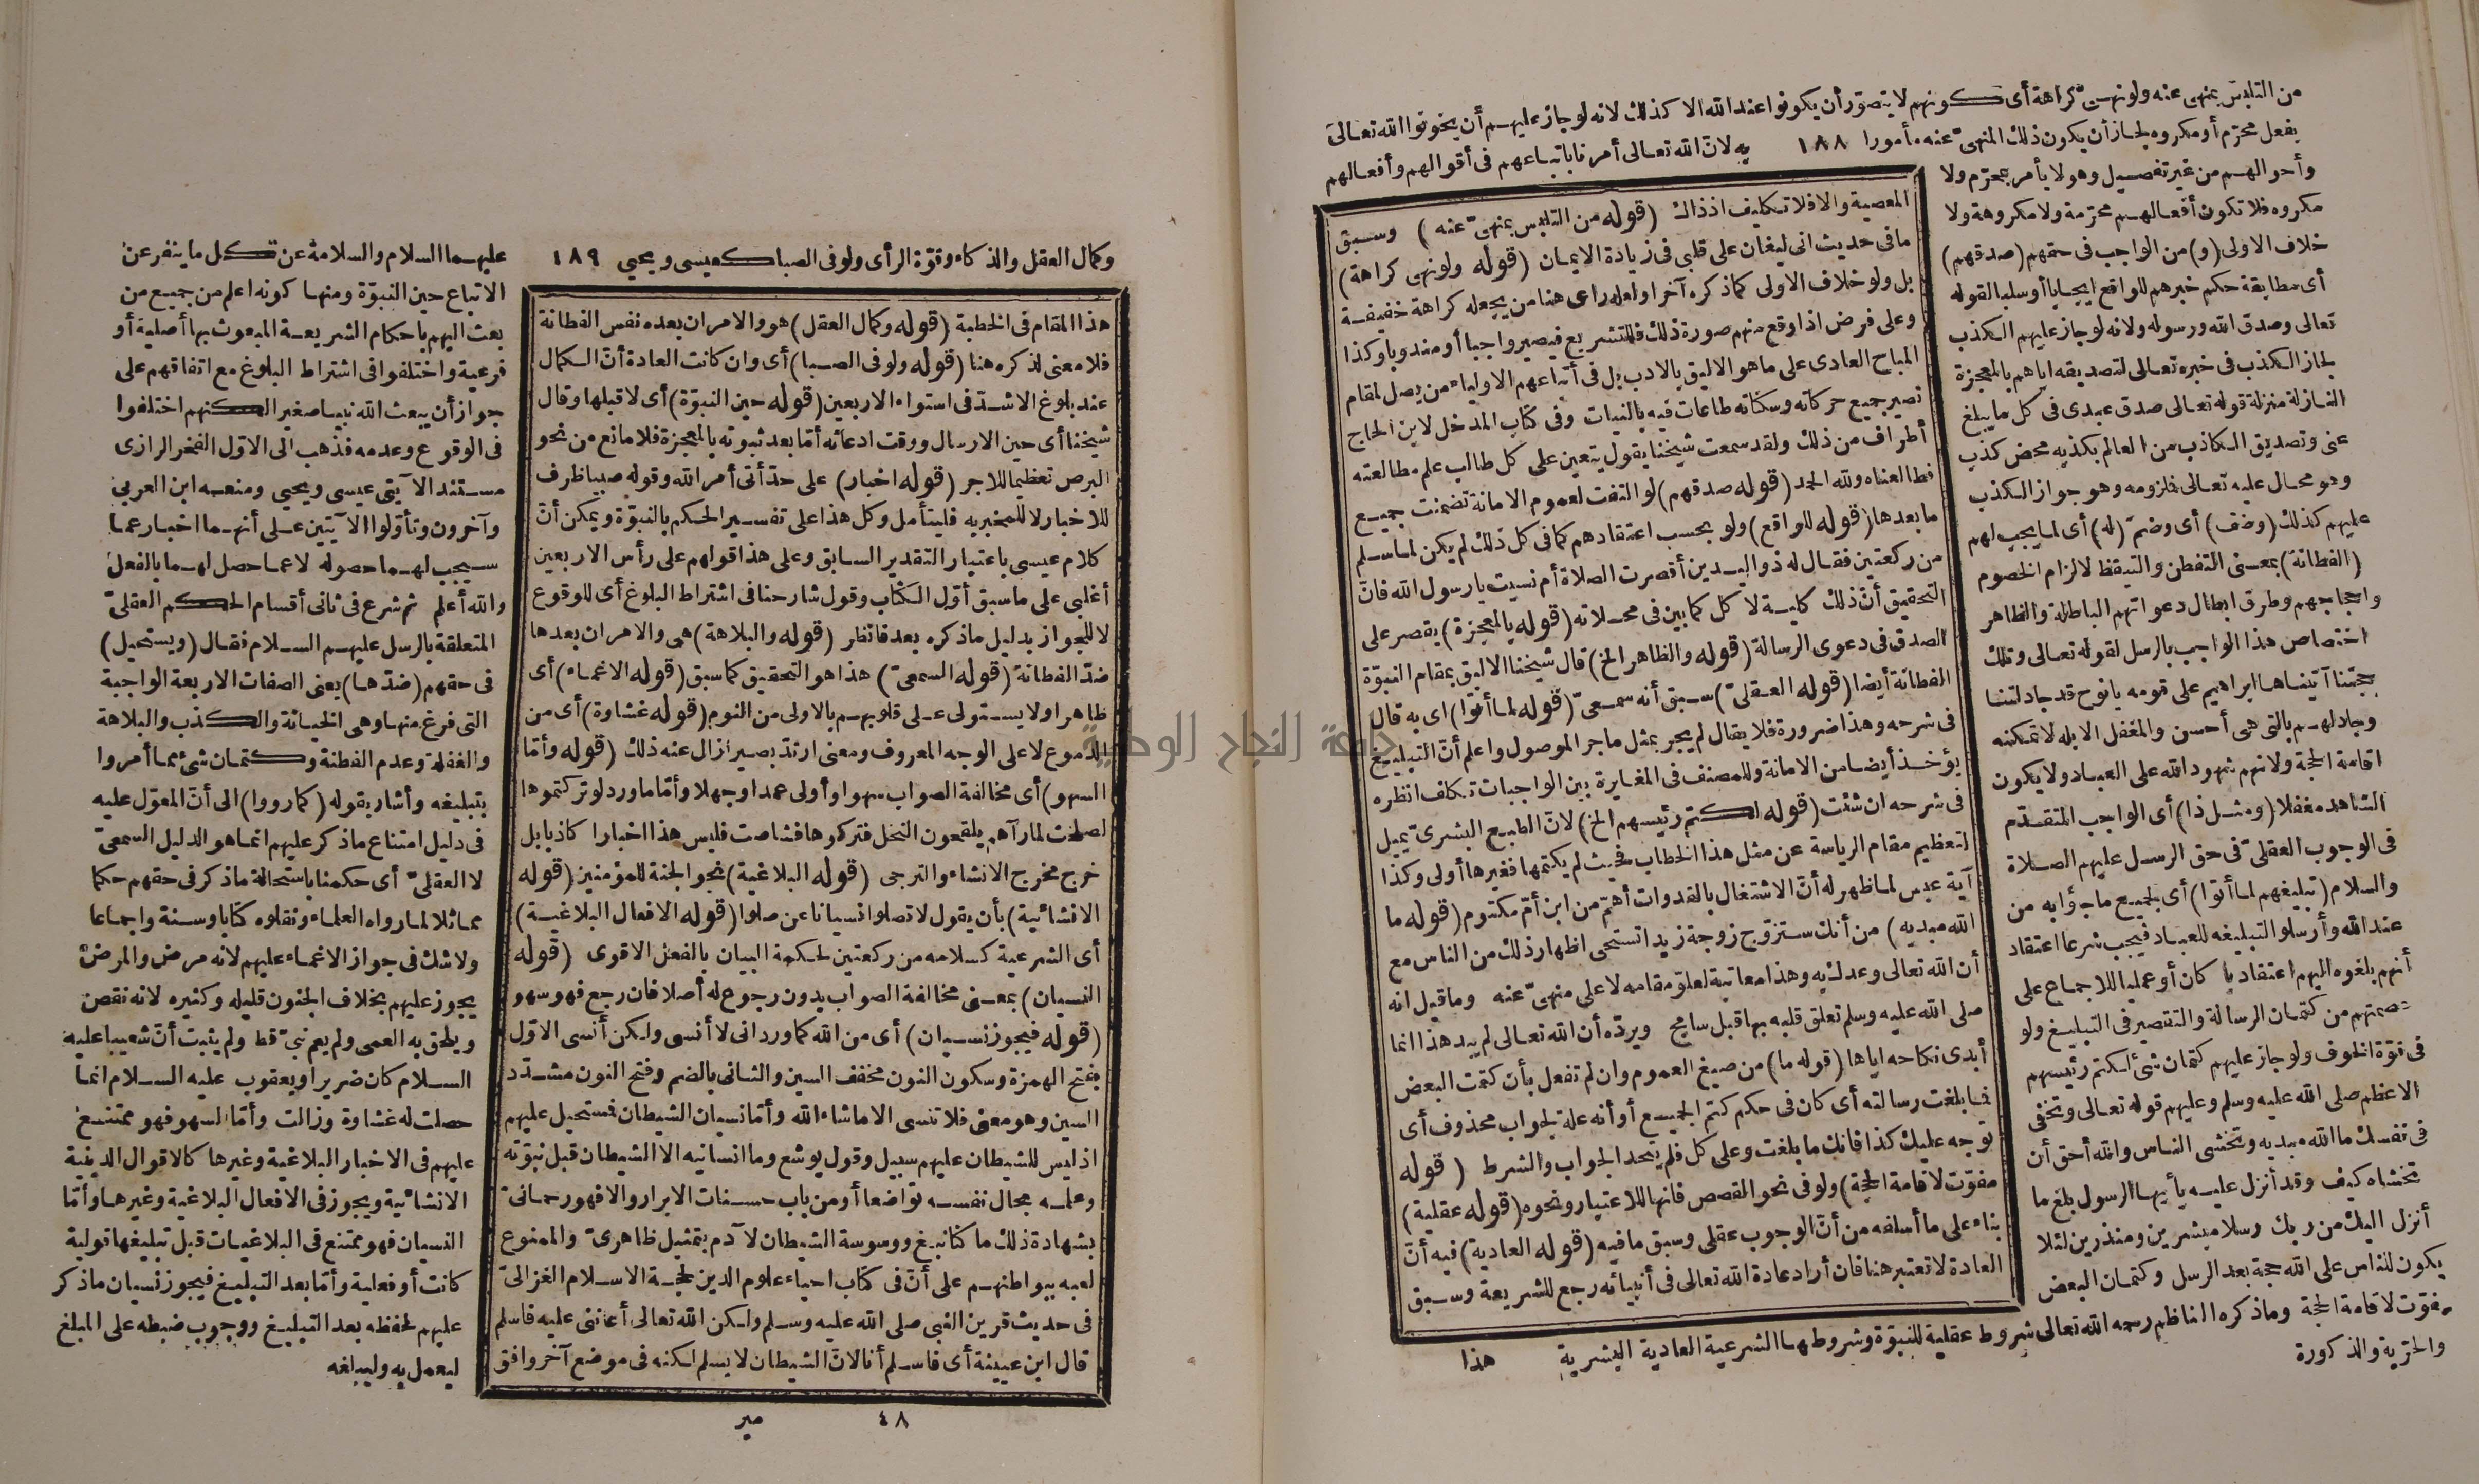 من التلبس بمنهى عنه ولو نهى كراهة أى كونهم لا يتصوّر أن يكونوا عند الله الا كذلك لانه لو جاز عليهم أن يخونوا الله تعالى
بفعل محرّم أو مكروه لجاز أن يكون ذلك المنهىّ عنه مأمورا ١٨٨ به لانّ الله تعالى أمرنا باتباعهم فى أقوالهم وأفعالهم
وأحوالهم من غير تفصيل وهو لا يأمر بمحرّم ولا
مكروه فلا تكون أفعالهم محرّمة ولا مكروهة ولا
خلاف الاولى (و) من الواجب فى حقهم (صدقهم)
أى مطابقة حكم خبرهم للواقع ايجابا أو سلبا لقوله
تعالى وصدق الله ورسوله ولانه لو جاز عليهم الكذب
لجاز الكذب فى خبره تعالى لتصديقه اياهم بالمعجزة
النازلة منزلة قوله تعالى صدق عبدى فى كل ما يبلغ
عنى وتصديق الكاذب من العالم بكذبه محض كذب
وهو محال عليه تعالى فلزومه وهو جواز الكذب
عليهم كذلك (وضف) أى وضمّ (له) أى لما يجب لهم
(الفطانة) بمعنى التفطن والتيقظ لالزام الخصوم
واحجاجهم وطرق ابطال دعواتهم الباطلة والظاهر
اختصاص هذا الواجب بالرسل لقوله تعالى وتلك
حجتنا آتيناها ابراهيم على قومه يا نوح قد جادلتنا
وجادلهم بالتى هى أحسن والمغفل الابله لا تمكنه
اقامة الحجة ولانهم شهود الله على العباد ولا يكون
الشاهد مغفلا (ومثل ذا) أى الواجب المتقدّم
فى الوجوب العقلىّ فى حق الرسل عليهم الصلاة
والسلام (تبليغهم لما أتوا) أى لجميع ما جاؤا به من
عند الله وأرسلوا لتبليغه للعباد فيجب شرعا اعتقاد
أنهم بلغوه اليهم اعتقاديا كان أو عمليا للاجماع على
عصمتهم من كتمان الرسالة والتقصير فى التبليغ ولو
فى قوّة الخوف ولو جاز عليهم كتمان شئ لكتم رئيسهم
الاعظم صلى الله عليه وسلم وعليهم قوله تعالى وتخفى
فى نفسك ما الله مبديه وتخشى الناس والله أحق أن
تخشاه كيف وقد أنزل عليه يأيها الرسول بلغ ما
أنزل اليك من ربك رسلا مبشرين ومنذرين لئلا
يكون للناس على الله حجة بعد الرسل وكتمان البعض
مفوّت لاقامة الحجة وما ذكره الناظم رحمه الله تعالى شروط عقلية للنبوّة وشروطها الشرعية العادية البشرية
والحرّية والذكورة
هذا
المعصية والا فلا تكليف اذ ذاك (قوله من التلبس بمنهىّ عنه) وسبق
ما فى حديث انى ليغان على قلبى فى زيادة الايمان (قوله ولو نهى كراهة)
بل ولو خلاف الاولى كما ذكره آخرا ولعله راعى هنا من يجعله كراهة خفيفة
وعلى فرض اذا وقع منهم صورة ذلك فللتشريع فيصير واجبا أو مندوبا وكذا
المباح العادى على ما هو الاليق بالادب بل فى أتباعهم الاولياء من يصل لمقام
تصير جميع حركاته وسكناته طاعات فيه بالنيات وفى كتاب المدخل لابن الحاج
أطراف من ذلك ولقد سمعت شيخنا يقول يتعين على كل طالب علم مطالعته
فطالعناه ولله الحمد (قوله صدقهم) لو التفت لعموم الامانة تضمنت جميع
ما بعدها (قوله للواقع) ولو بحسب اعتقادهم كما فى كل ذلك لم يكن لما سلم
من ركعتين فقال له ذو اليدين أقصرت الصلاة أم نسيت يا رسول الله فانّ
التحقيق أنّ ذلك كلية لا كل كما بين فى محلاته (قوله بالمعجزة) يقصر على
الصدق فى دعوى الرسالة (قوله والظاهر الخ) قال شيخنا الاليق بمقام النبوّة
الفطانة أيضا (قوله العقلىّ) سبق أنه سمعىّ (قوله لما أتوا) اى به قال
فى شرحه وهذا ضرورة فلا يقال لم يجر بمثل ما جر الموصول واعلم أنّ التبليغ
يؤخذ أيضا من الامانة وللمصنف فى المغايرة بين الواجبات تكلف انظره
فى شرحه ان شئت (قوله لكتم رئيسهم الخ) لانّ الطبع البشرىّ يميل
لتعظيم مقام الرياسة عن مثل هذا الخطاب فحيث لم يكتمها فغيرها أولى وكذا
آية عبس لما ظهر له أنّ الاشتغال بالقدوات أهمّ من ابن أمّ مكتوم (قوله ما
الله مبديه) من أنك ستزوّج زوجة زيد اتستحى اظهار ذلك من الناس مع
أن الله تعالى وعدك به وهذا معاتبة لعلوّ مقامه لا على منهىّ عنه وما قيل انه
صلى الله عليه وسلم تعلق قلبه بها قبل سامج ويردّه أن الله تعالى لم يبد هذا انما
أبدى نكاحه اياها (قوله ما) من صيغ العموم وان لم تفعل بأن كتمت البعض
فما بلغت رسالته أى كان فى حكم كتم الجميع أو أنه علة لجواب محذوف أى
توجه عليك كذا فانك ما بلغت وعلى كل فلم يتحد الجواب والشرط (قوله
مفوّت لاقامة الحجة) ولو فى نحو القصص فانها للاعتبار ونحوه (قوله عقلية)
بناء على ما أسلفه من أنّ الوجوب عقلى وسبق ما فيه (قوله العادية) فيه أنّ
العادة لا تعتبر هنا فان أراد عادة الله تعالى فى أنبيائه رجع للشريعة وسبق
وكمال العقل والذكاء وقوّة الرأى ولو فى الصبا كعيسى ويحيى ١٨٩ عليهما السلام والسلامة عن كل ما ينفر عن
الاتباع حين النبوّة ومنها كونه اعلم من جميع من
بعث اليهم باحكام الشريعة المبعوث بها أصلية أو
فرعية واختلفوا فى اشتراط البلوغ مع اتفاقهم على
جواز أن يبعث الله نبيا صغيرا لكنهم اختلفوا
فى الوقوع وعدمه فذهب الى الاول الفخر الرازى
مستندا لآيتى عيسى ويحيى ومنعه ابن العربى
وآخرون وتأوّلوا الآيتين على أنهما اخبار عما
سيجب لهما حصوله لا عما حصل لهما بالفعل
والله أعلم ثم شرع فى ثانى أقسام الحكم العقلىّ
المتعلقة بالرسل عليهم السلام فقال (ويستحيل)
فى حقهم (ضدّها) يعنى الصفات الاربعة الواجبة
التى فرغ منها وهى الخيانة والكذب والبلاهة
والغفلة وعدم الفطنة وكتمان شئ مما أمروا
بتبليغه وأشار بقوله (كما رووا) الى أنّ المعوّل عليه
فى دليل امتناع ما ذكر عليهم انما هو الدليل السمعىّ
لا العقلىّ أى حكمنا باستحالة ما ذكر فى حقهم حكما
مماثلا لما رواه العلماء ونقلوه كتابا وسنة واجماعا
ولا شك فى جواز الاغماء عليهم لانه مرض والمرض
يجوز عليهم بخلاف الجنون قليله وكثيره لانه نقص
ويلحق به العمى ولم يعم نبىّ قط ولم يثبت أنّ شعيبا عليه
السلام كان ضريرا ويعقوب عليه السلام انما
حصلت له غشاوة وزالت وأمّا السهو فهو ممتنع
عليهم فى الاخبار البلاغية وغيرها كالاقوال الدينية
الانشائية ويجوز فى الافعال البلاغية وغيرها وأمّا
النسيان فهو ممتنع فى البلاغيات قبل تبليغها قولية
كانت أو فعلية وأمّا بعد التبليغ فيجوز نسيان ما ذكر
عليهم لحفظه بعد التبليغ ووجوب ضبطه على المبلغ
ليعمل به وليبلغه
هذا المقام فى الخطبة (قوله وكمال العقل) هو والامران بعده نفس الفطانة
فلا معنى لذكره هنا (قوله ولو فى الصبا) أى وان كانت العادة أنّ الكمال
عند بلوغ الاشدّ فى استواء الاربعين (قوله حين النبوّة) أى لا قبلها وقال
شيخنا أى حين الارسال ووقت ادعائه أمّا بعد ثبوته بالمعجزة فلا مانع من نحو
البرص تعظيما للاجر (قوله اخبار) على حدّ أتى أمر الله وقوله صبيا ظرف
للاخبار لا للمخبر به فليتأمل وكل هذا على تفسير الحكم بالنبوّة ويمكن أنّ
كلام عيسى باعتبار التقدير السابق وعلى هذا قولهم على رأس الاربعين
أغلبى على ما سبق أوّل الكتاب وقول شارحنا فى اشتراط البلوغ أى للوقوع
لا للجواز بدليل ما ذكره بعد فانظر (قوله والبلاهة) هى والامران بعدها
ضدّ الفطانة (قوله السمعىّ) هذا هو التحقيق كما سبق (قوله الاغماء) أى
ظاهرا ولا يستولى على قلوبهم بالاولى من النوم (قوله غشاوة) أى من
الدموع لا على الوجه المعروف ومعنى ارتدّ بصيرا زال عنه ذلك (قوله وأمّا
السهو) أى مخالفة الصواب سهوا وأولى عمدا وجهلا وأمّا ما ورد لو تركتموها
لصلحت لما رآهم يلقحون النخل فتركوها فشاصت فليس هذا اخبارا كاذبا بل
خرج مخرج الانشاء والترجى (قوله البلاغية) نحو الجنة للمؤمنين (قوله
الانشائية) بأن يقول لا تصلوا نسيانا عن صلوا (قوله الافعال البلاغية)
أى الشرعية كسلامه من ركعتين لحكمة البيان بالفعل الاقوى (قوله
النسيان) بمعنى مخالفة الصواب بدون رجوع له أصلا فان رجع فهو سهو
(قوله فيجوز نسيان) أى من الله كما ورد انى لا أنسى ولكن أنسى الاوّل
بفتح الهمزة وسكون النون مخفف السين والثانى بالضم وفتح النون مشدّد
السين وهو معنى فلا تنسى الا ما شاء الله وأمّا نسيان الشيطان فمستحيل عليهم
اذ ليس للشيطان عليهم سبيل وقول يوشع وما انسانيه الا الشيطان قبل نبوّته
وعلمه بحال نفسه تواضعا أو من باب حسنات الابرار والا فهو رحمانىّ
بشهادة ذلك ما كنا نبغ ووسوسة الشيطان لآدم بتمثيل ظاهرىّ والممنوع
لعبه ببواطنهم على أنّ فى كتاب احياء علوم الدين لحجة الاسلام الغزالىّ
فى حديث قرين النبى صلى الله عليه وسلم ولكن الله تعالى أعاننى عليه فاسلم
قال ابن عيينة أى فاسلم أنا لانّ الشيطان لا يسلم لكنه فى موضع آخر وافق
٤٨ مير
جامعة النجاح الوطنية